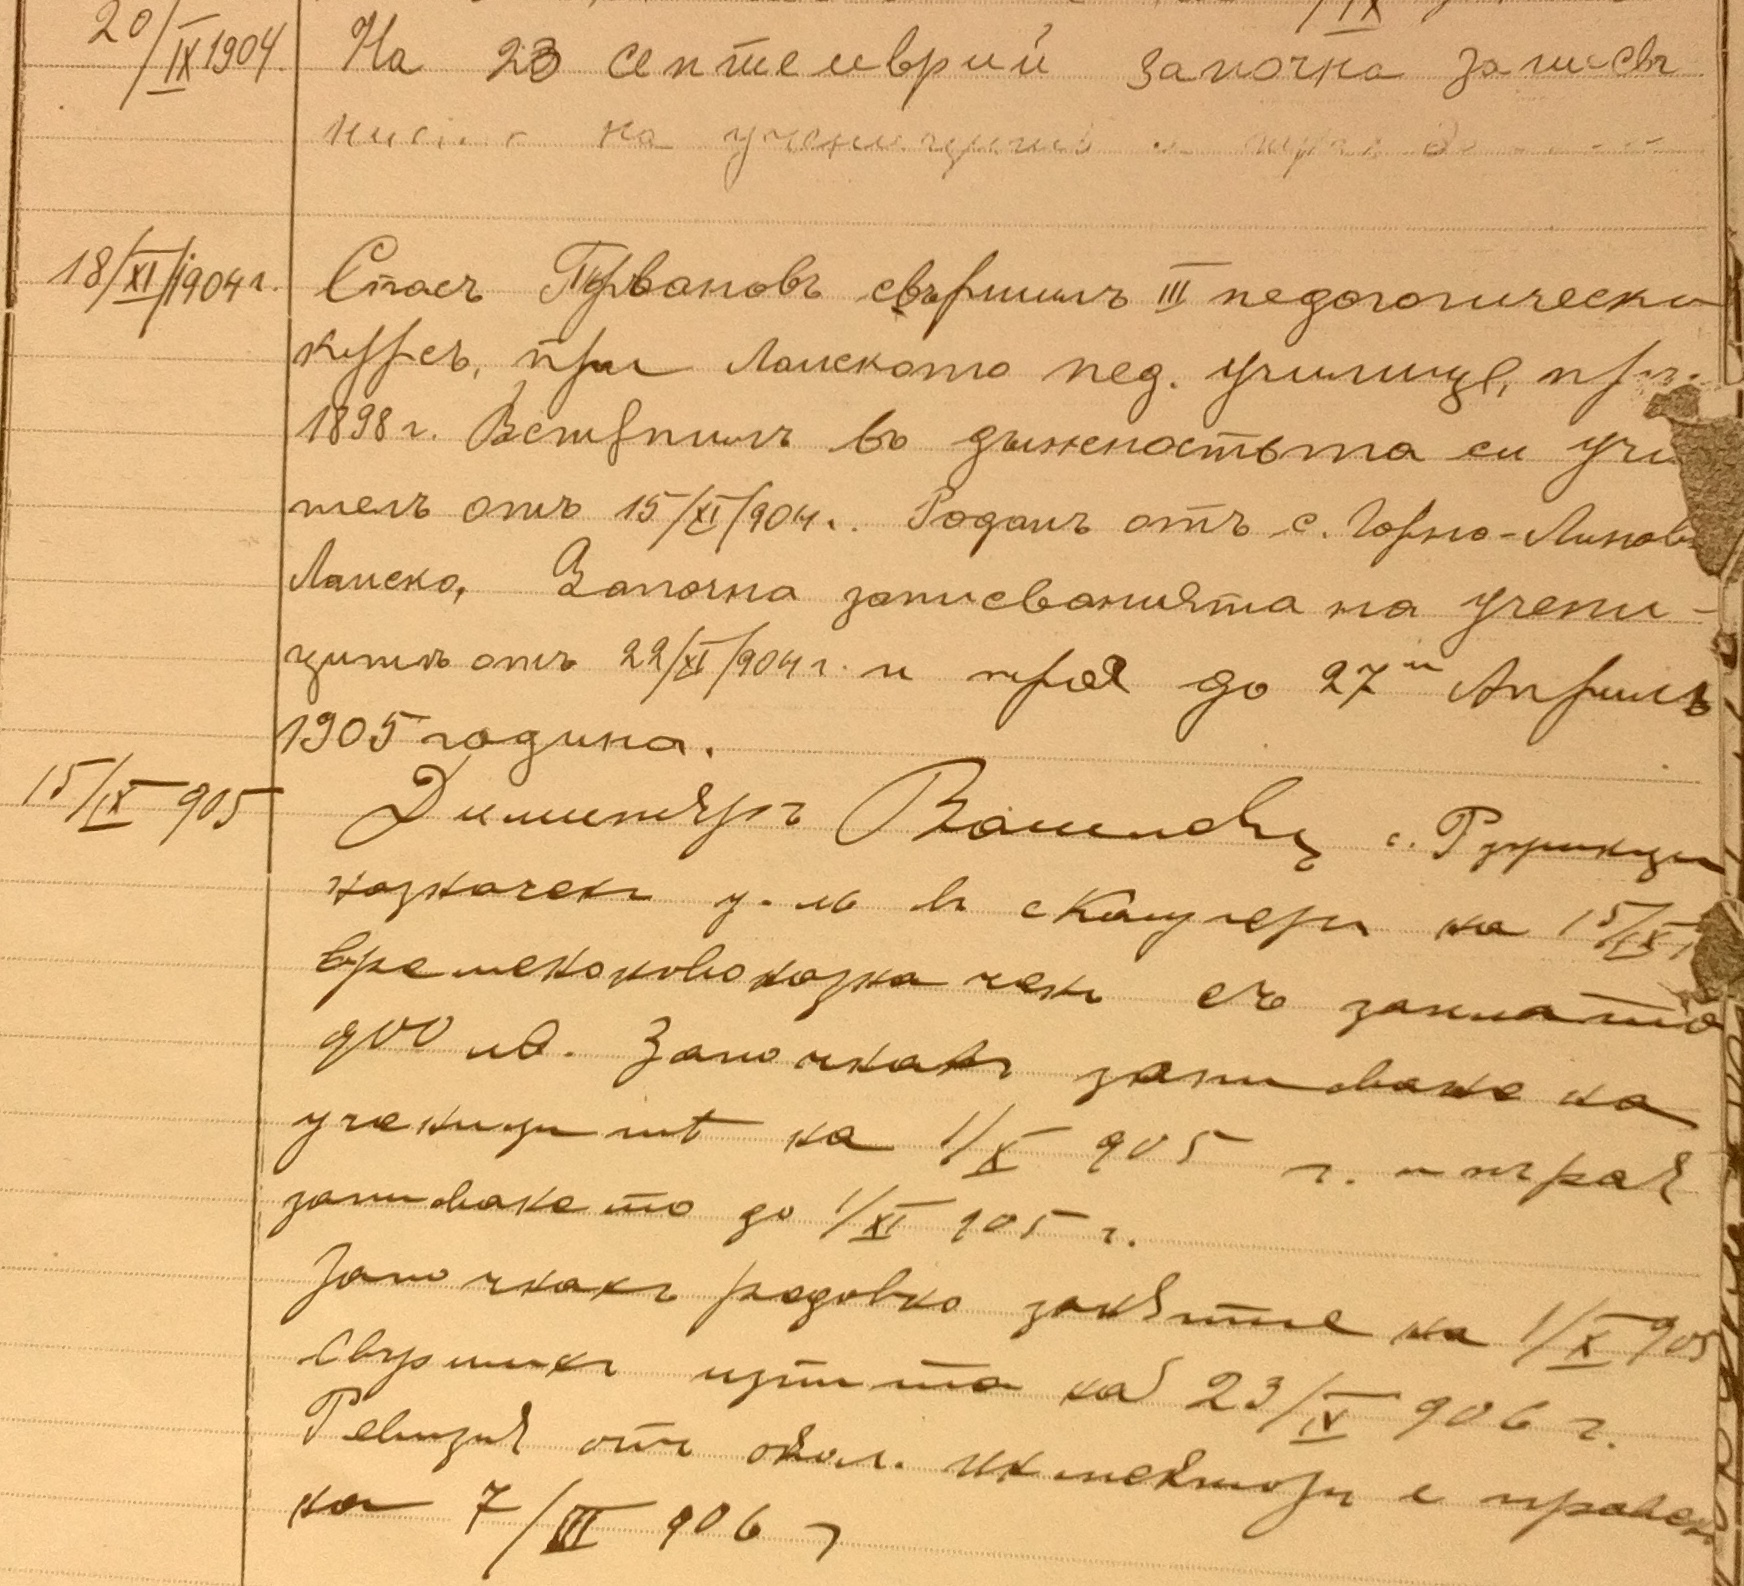 20/IX 1904. На 23 септемврий започна записв
на ученицитѣ и трая
18/XI/1904 г. Спасъ Първановъ свършилъ III педогогически
курсъ, при Ломското пед. училище, при
1898 г. Встѫпилъ въ длъжностьта си учи
тель отъ 15/XI/904 г. Родомъ отъ с. Горно-Линово
Ломско, Започна записванията на учени-
цитѣ отъ 22/XI/904 г. и трая до 27ий Априлъ
1905 година.
15/IX 905 Димитъръ Василевъ с.
назначенъ у-лъ въ с на 15/IX
временоновоназначенъ съ заплата
900 лв. Започнахъ записване на
ученицитѣ на 1/X 905 г. и трая
записването до 1/XI 905 г.
Започнахъ редовно занятие на 1/X 905
Свършихъ изпита на 23/IV 906 г.
Ревизия отъ окол. инспекторъ е правен
на 7/III 906 г